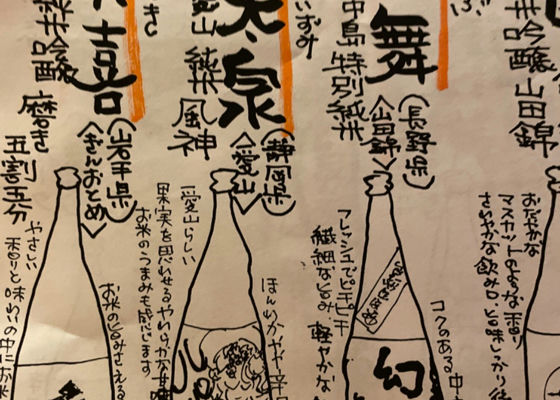 ぶ
米吟醸 山田錦
おだやかな
マスカットのような香り
さわやかな飲み口、旨味しっかり
舞
中島 特別純米
(長野県)
〈山田錦〉
フレッシュでピチピチ
繊細な旨み 軽やかな
コクのある中
幻
いずみ
泉
愛山 純米 風神
(静岡県)
〈愛山〉
愛山らしい
果実を思わせるやわらかな甘
お米のうまみも感じます
ほんのりやや辛
喜
純米吟醸 磨き
五割五分
(岩手県)
〈ぎんおとめ〉
やさしい
香りと味わいの中にお米
お米の旨みさえる